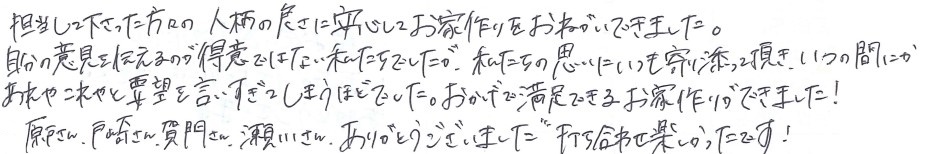 担当して下さった方々の人柄の良さに安心してお家作りをおねがいできました。
自分の意見を伝えるのが得意ではない私たちでしたが、私たちの思いにいつも寄り添って頂き、いつの間にか
あれやこれやと要望を言いすぎてしまうほどでした。おかげで満足できるお家作りができました!
原さん、戸崎さん、賀門さん、瀬川さん、ありがとうございました 打ち合わせ楽しかったです!